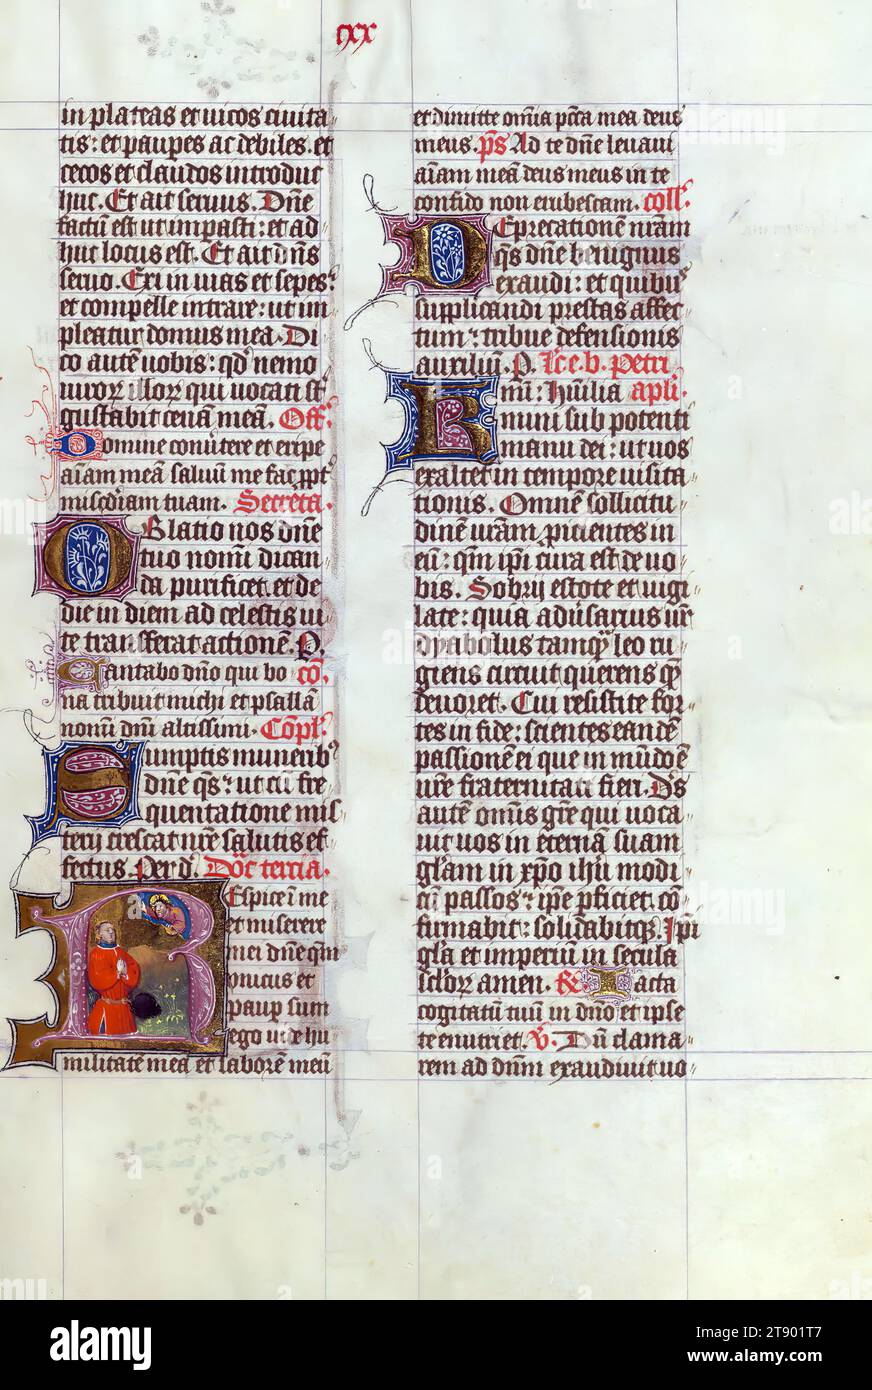 cxx
in plateas et vicos civita
tis: et paupes ac debiles. et
cecos et claudos introduc
huc. Et ait servus. Dne
factu est ut impasti: et ad
huc locus est. Et ait dns
servo. Exi in vias et sepes:
et compelle intrare: ut im
pleatur domus mea. Di
co aute vobis: qd nemo
viror illor qui vocati st
gustabit cenam mea. Off.
Domine convertere et eripe
aiam mea salvu me fac ppt
miscdiam tuam. Secreta.
Oblatio nos dne
tuo nomi dican
da purificet et de
die in diem ad celestis vi
te transferat actione. P.
Cantabo dno qui bo co
na tribuit michi et psalla
nomi dni altissimi. Copl.
Sumptis munerib
dne qs: ut cu fre
quentatione mis
terii crescat nre salutis ef
fectus. Per d. Doc tercia.
Respice i me
et miserere
mei dne qm
unicus et
paup sum
ego vide hu
militate mea et labore meu
et dimitte omia pcca mea deus
meus. ps Ad te dne levavi
aiam mea deus meus in te
confido non erubescam. coll.
Deprecatione nram
qs dne benignus
exaudi: et quibus
supplicandi prestas affec
tum: tribue defensionis
auxiliu. P. Lc e. b. Petri
Rmi: Humilia apli.
mini sub potenti
manu dei: ut vos
exaltet in tempore visita
tionis. Omne sollicitu
dine vram proicientes in
eu: qm ipi cura est de vo
bis. Sobrii estote et vigi
late: quia adversarius vr
dyabolus tamq leo ru
giens circuit querens que
devoret. Cui resistite for
tes in fide: scientes eande
passione ei que in mudo e
vre fraternitati fieri. Ds
aute omis gre qui voca
vit vos in eterna suam
gliam in xpo ihu modi
cu passos: ipe pficiet co
firmabit: solidabitq. Ipi
gla et imperiu in secula
sclor amen. Iacta
cogitatu tuu in dno et ipse
te enutriet. V. Du clama
rem ad dnm exaudivit vo
alamy
Image ID: 2T901T7
www.alamy.com